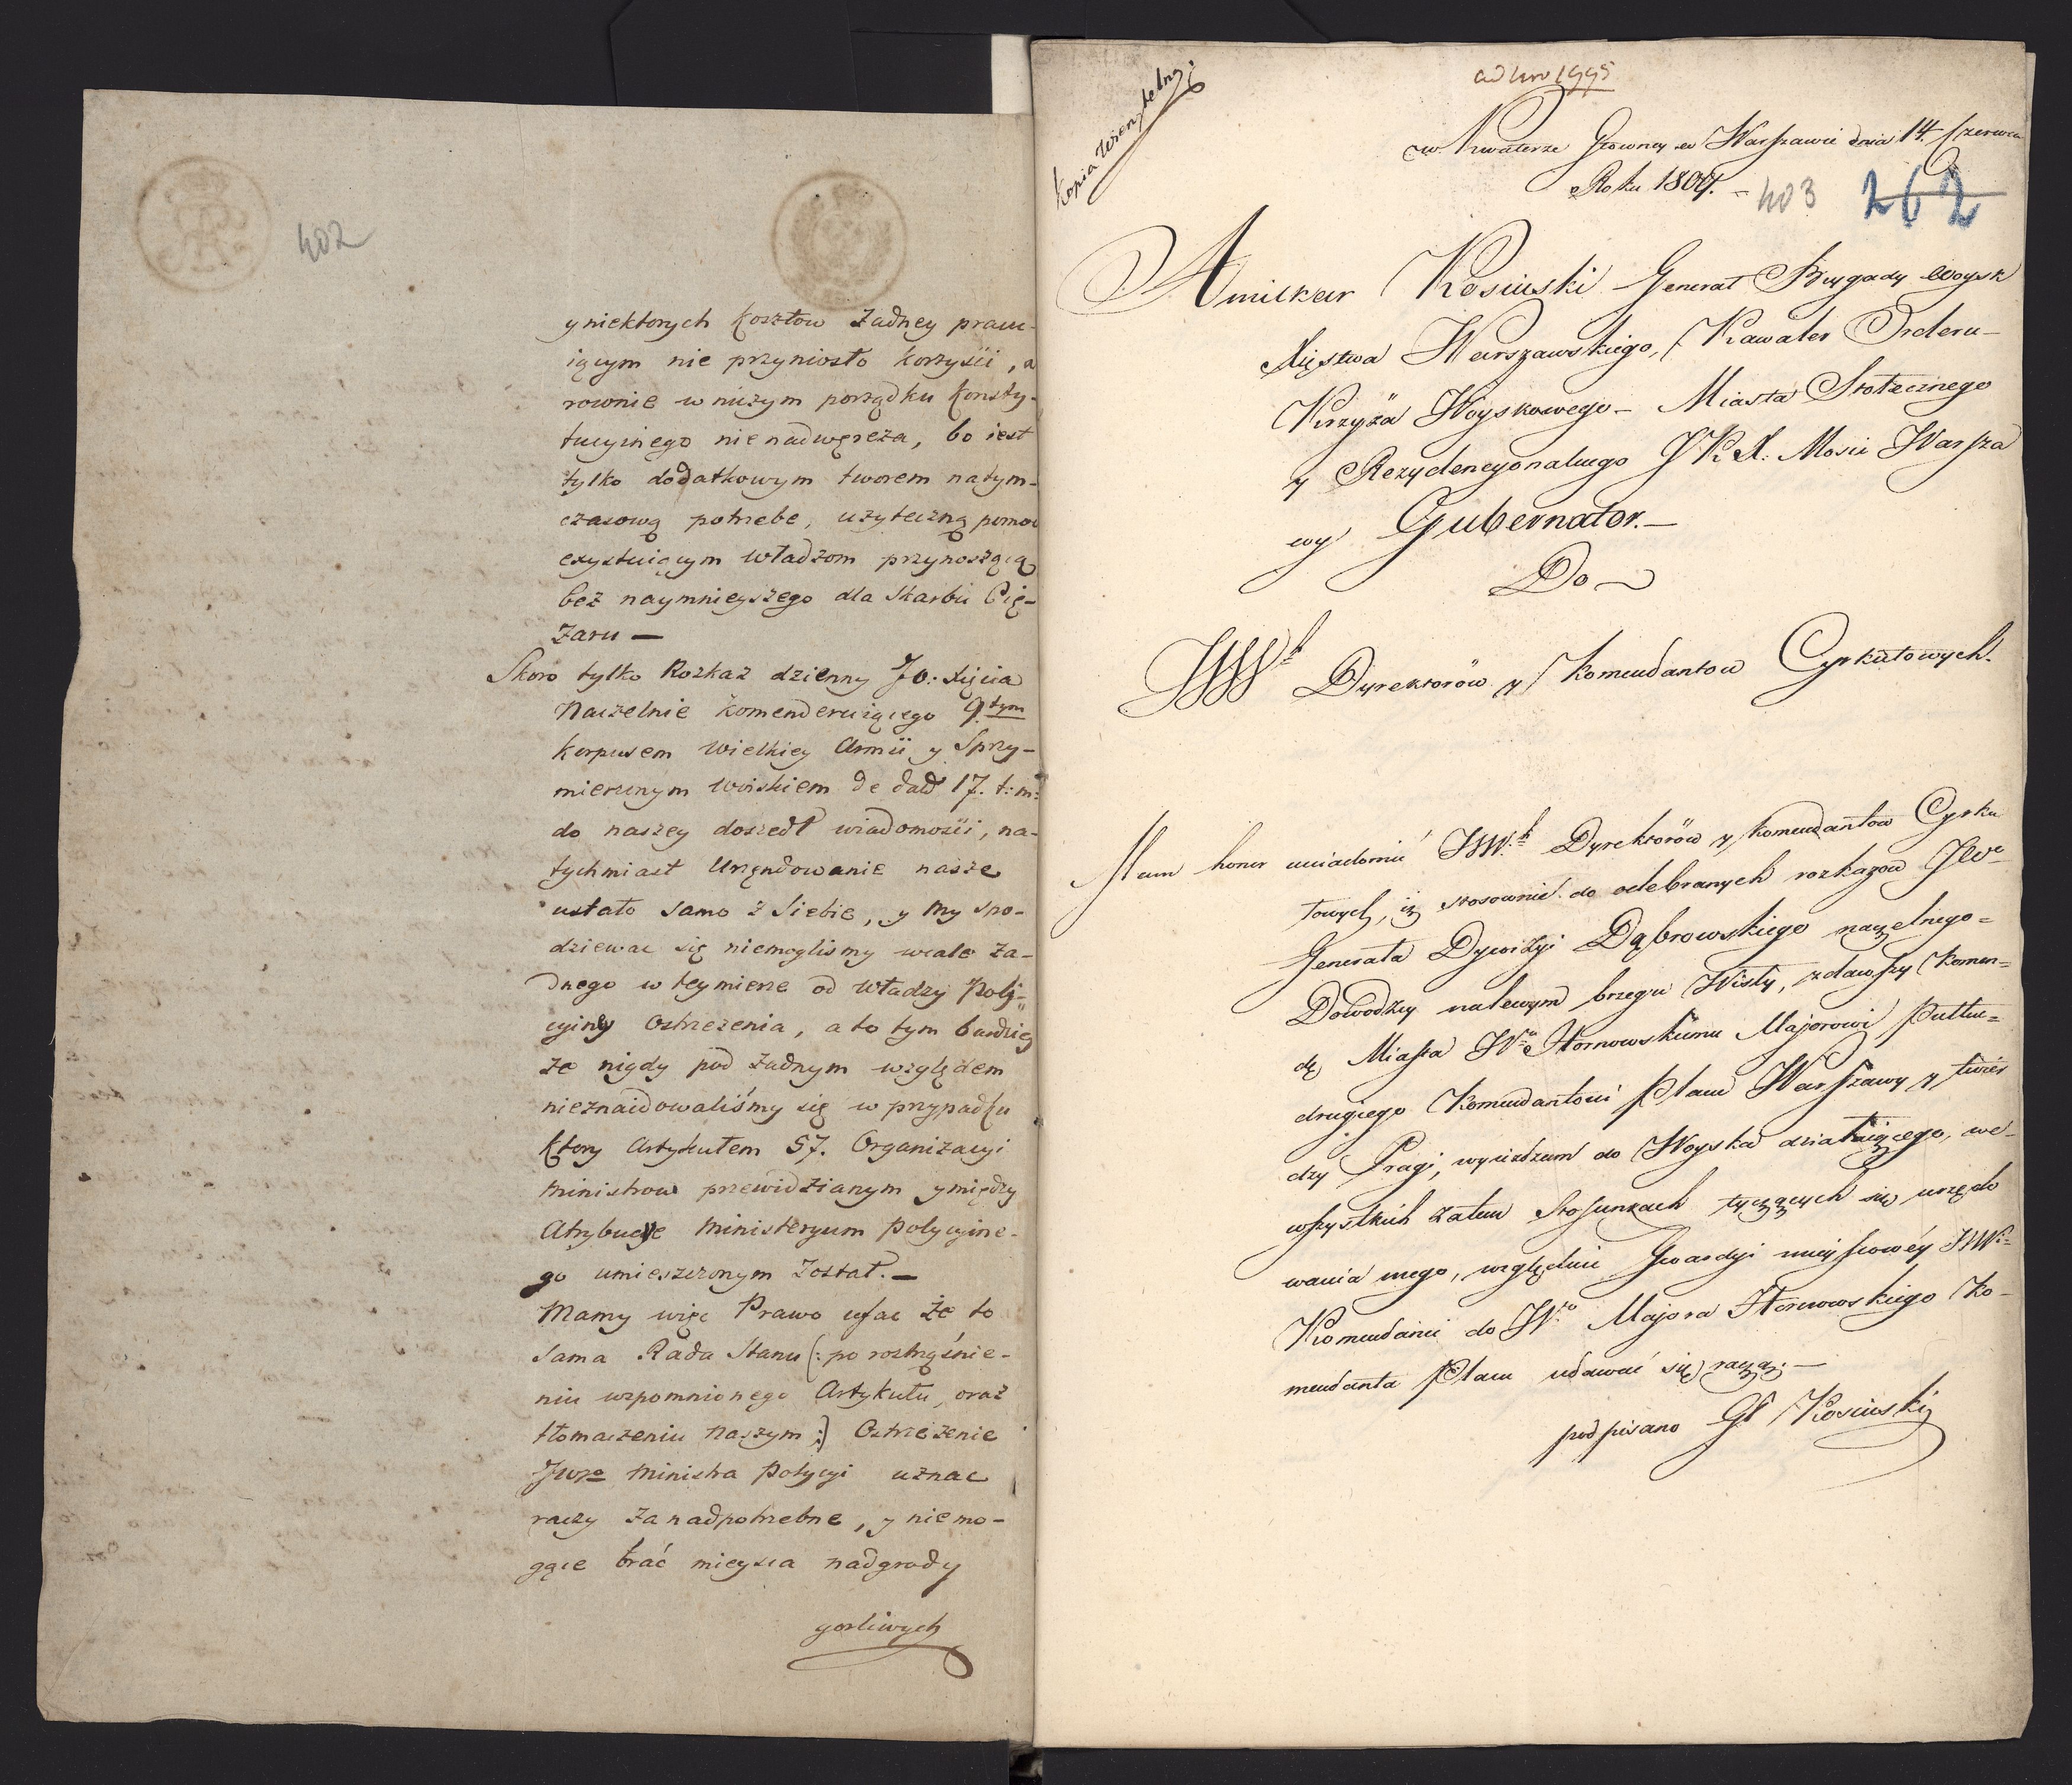 402
y niektorych kosztow żadney pracu-
iącym nie przyniosło korzyści, a
rownie w niczym porządku konsty-
tucyinego nie nadwęreża, bo iest
tylko dodatkowym tworem na tym-
czasową potrzebe, użyteczną pomoc
exystuiącym władzom przynoszącą
bez naymnieyszego dla Skarbu Cię-
żaru —
Skoro tylko Rozkaz dzienny JO: Xięcia
Naczelnie komenderuiącego 9tym
korpusem Wielkiey Armii y Sprzy-
mierzonym woiskiem de dato 17. t: m:
do naszey doszedł wiadomości, na-
tychmiast Urzędowanie nasze
ustało samo z siebie, y my spo-
dziewac się niemogliśmy wcale ża-
dnego w teymierze od władzy Poli-
cyiney Ostrzeżenia, a to tym bardziey
że nigdy pod żadnym względem
nieznaidowaliśmy się w przypadku
ktory Artykułem 57. Organizacyi
Ministrow przewidzianym y między
Atrybucye Ministeryum Policyine-
go umieszczonym został. —
Mamy więc Prawo ufac że to
sama Rada Stanu (: po roztrząśnie-
niu wzpomnionego Artykułu, oraz
tłomaczeniu naszym :) Ostrzeżenie
JWgo Ministra Policyi uznac
raczy za nadpotrzebne, y niemo-
gące brać mieysca nadgrody
gorliwych
Kopia Wierzytelna
ad Nro 1995
w Kwaterze Głowney w Warszawie dnia 14. Czerwca
Roku 1809. –
403
262
Amilkar Kosiński Generał Brygady woysk
Xięstwa Warszawskiego, Kawaler Orderu
Krzyża Woyskowego – Miasta Stołecznego
y Rezydencyonalnego J K X. Mości Warsza
wy Gubernator. —
Do
JWW Dyrektorów y Komendantow Cyrkułowych.
Mam honor uwiadomić JWW. Dyrektorów y Komendantow Cyrku
łowych, iż stosownie do odebranych rozkazow JW
Generała Dywizyi Dąbrowskiego naczelnego
Dowodzcy na lewym brzegu Wisły, zdawszy Komen=
dę Miasta W. Hornowskiemu Majorowi Pułku
drugiego Komendantowi Placu Warszawy y twier
dzy Pragi, wyieżdżam do Woyska działaiącego, we
wszystkich zatem Stosunkach tyczących się urzędo
wania mego, względnie Gwardyi mieyscowéy JWW.
Komendanci do W. Majora Hornowskiego Ko-
mendanta Placu udawać się raczą. —
podpisano Gł Kosiński